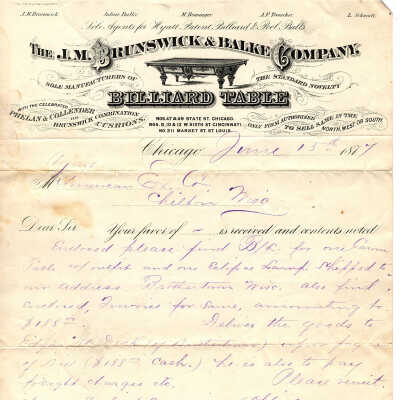 J.M. Brunswick Julius Balke M. Bensinger A.F. Troescher L. Schmidt
Sole Agents for Hyatt Patent Billiard & Pool Balls
THE J.M. BRUNSWICK & BALKE COMPANY,
SOLE MANUFACTURERS OF THE STANDARD NOVELTY
BILLIARD TABLE
WITH THE CELEBRATED
PHELAN & COLLENDER
AND
BRUNSWICK COMBINATION
CUSHIONS.
ONLY FIRM AUTHORIZED
TO SELL SAME IN THE
NORTH, WEST OR SOUTH
NOS. 47 & 49 STATE ST. CHICAGO.
NOS. 8, 10 & 12 W. SIXTH ST. CINCINNATI.
NO. 211 MARKET ST. ST. LOUIS.
Chicago, June 15th 1877
M American Ex Co
Chilton Wis
Dear Sir Your favor of - is received and contents noted
Enclosed please find B/L for one
Table outfit and one Eclipse Lamp. Shipped to
our address Wis. also find
enclosed, Invoices for same, amounting to
$188
Deliver the goods to
of B/L ($188 cash.) he is also to pay
freight charges etc. Please remit.